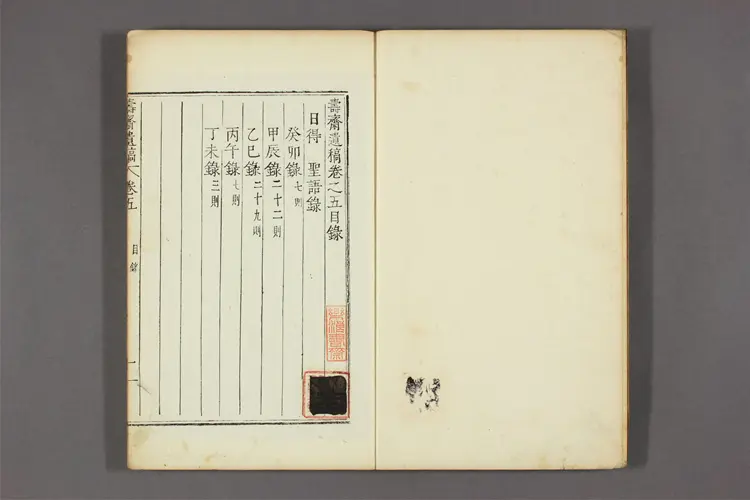 壽齋遺稿卷之五目錄
日得 聖語錄
癸卯錄七則
甲辰錄二十二則
乙巳錄二十九則
丙午錄七則
丁未錄三則
壽齋遺稿 卷五
目錄